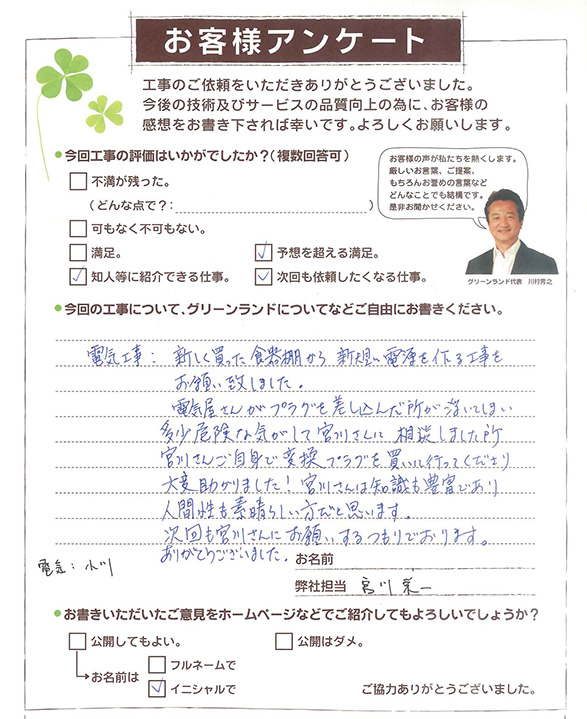 お客様アンケート
工事のご依頼をいただきありがとうございました。
今後の技術及びサービスの品質向上の為に、お客様の
感想をお書き下されば幸いです。よろしくお願いします。
●今回工事の評価はいかがでしたか?(複数回答可)
お客様の声が私たちを熱くします。
厳しいお言葉、ご提案、
もちろんお誉めの言葉など
どんなことでも結構です。
是非お聞かせください。
グリーンランド代表 川村芳之
□不満が残った。
(どんな点で?: )
□可もなく不可もない。
□満足。 ☑予想を超える満足。
☑知人等に紹介できる仕事。 ☑次回も依頼したくなる仕事。
●今回の工事について、グリーンランドについてなどご自由にお書きください。
電気工事: 新しく買った食器棚から新規い電源を作る工事を
お願い致しました。
電気屋さんがプラグを差し込んだ所が浮いてしまい
多少危険な気がして宮川さんに相談しました所
宮川さんご自身で変換プラグを買いに行ってくださり
大変助かりました!宮川さんは知識も豊富であり
人間性も素晴らしい方だと思います。
次回も宮川さんにお願いするつもりでおります。
ありがとうございました。
お名前
電気: 小川
弊社担当 宮川 栄一
●お書きいただいたご意見をホームページなどでご紹介してもよろしいでしょうか?
□公開してもよい。 □公開はダメ。
お名前は □フルネームで
☑イニシャルで
ご協力ありがとうございました。